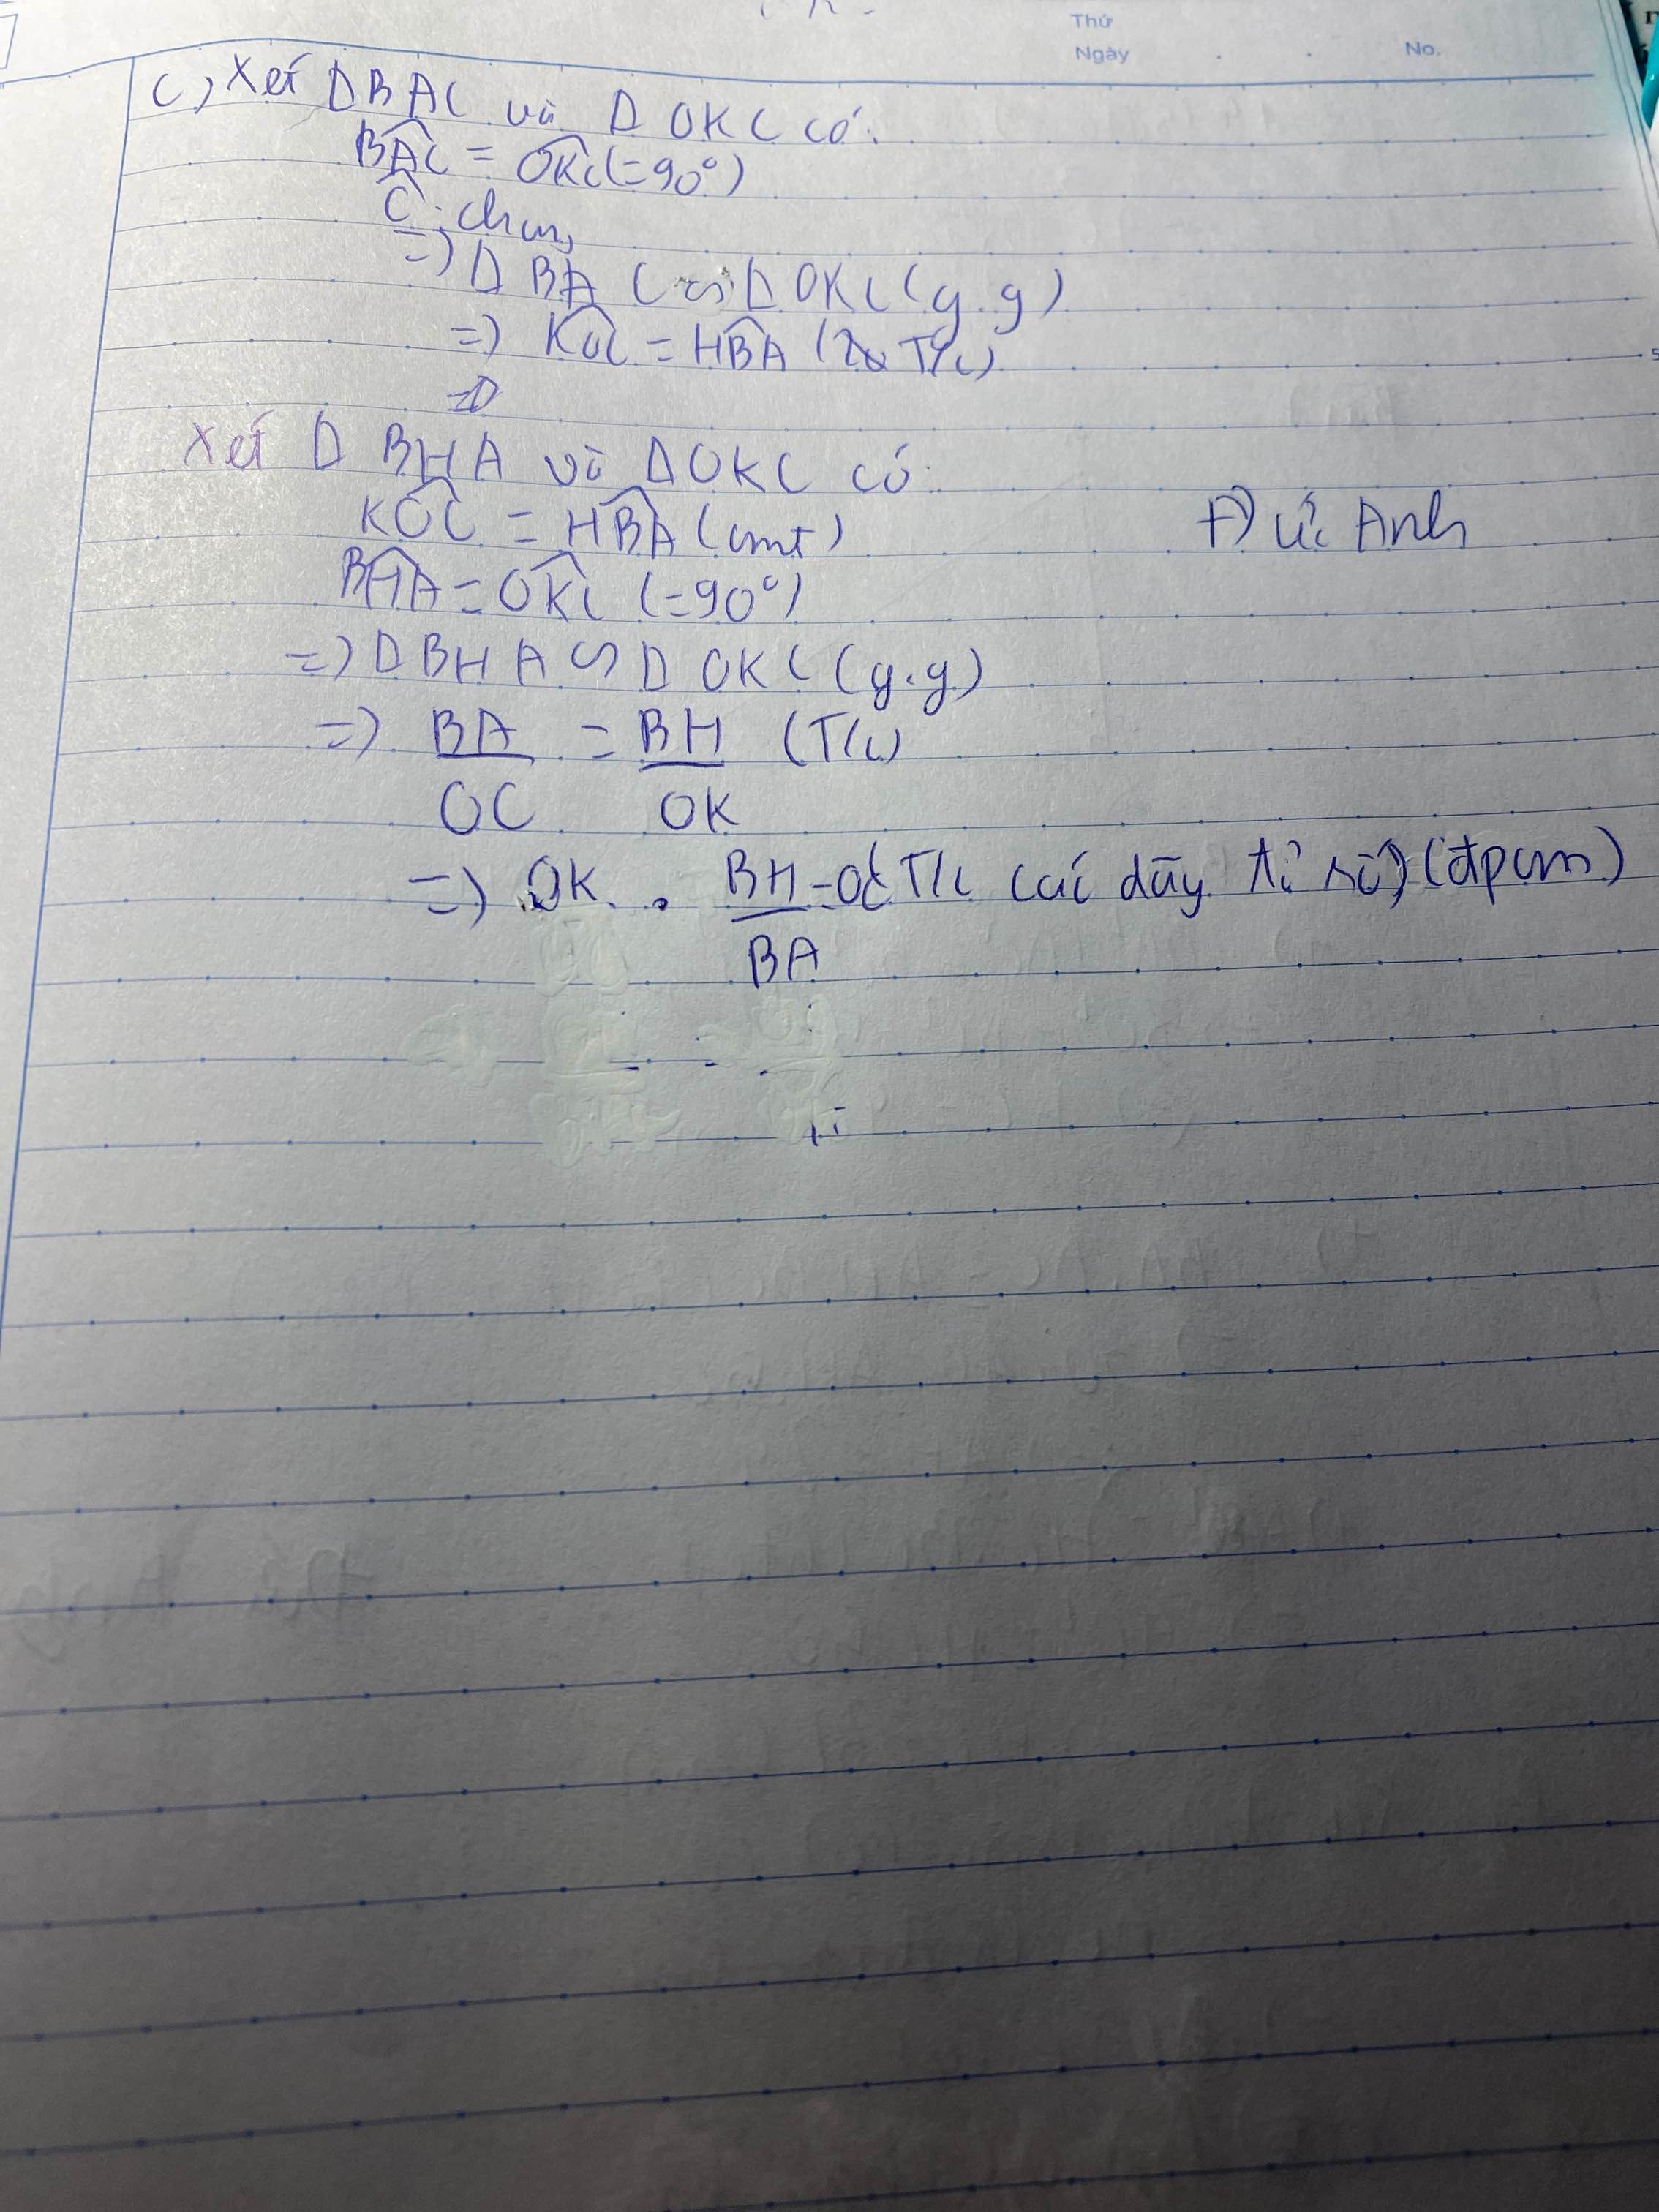 Thứ
Ngày . . No.
c) Xét Δ BAC và Δ OKC có:
BAC = OKC (=90°)
C: chung
=) Δ BAC ∽ Δ OKC (g.g)
=) KOC = HBA (T/c)
=)
Xét Δ BHA và Δ OKC có:
KOC = HBA (cmt)
Đức Anh
BHA = OKC (=90°)
=) Δ BHA ∽ Δ OKC (g.g)
=) BA = BH (T/c)
OC OK
=) OK . BH = OC T/c các dãy tỉ số) (đpcm)
BA